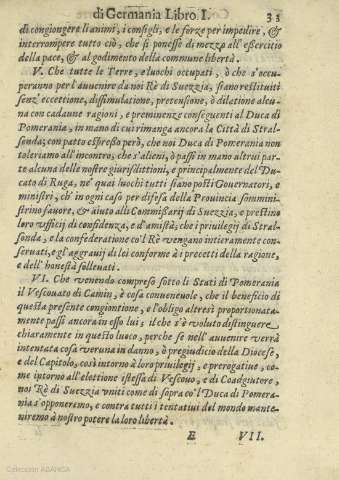 di Germania Libro I. 33
di congiongere li animi, i consigli, e le forze per impedire, &
interrompere tutto ciò, che si ponesse di mezzo all'essercitio
della pace, & al godimento della commune libertà.
V. Che tutte le Terre, e luochi occupati, ò che s'occu-
peranno per l'auuenire da noi Rè di Suezzia, siano restituiti
senz'eccettione, dissimulatione, pretensione, ò dilatione alcu-
na con cadaune ragioni, e preminenze conseguenti al Duca di
Pomerania, in mano di cui rimanga ancora la Città di Stral-
sonda; con patto espresso però, che noi Duca di Pomerania non
toleriamo all'incontro, che s'alieni, ò passi in mano altrui par-
te alcuna delle nostre giurisdittioni, e principalmente del Du-
cato di Ruga, ne' quai luochi tutti siano posti Gouernatori, e
ministri, ch'in ogni caso per difesa della Prouincia sommini-
strino fauore, & aiuto alli Commissarij di Suezzia, e prestino
loro vfficij di confidenza, e d'amistà; che i priuilegij di Stral-
sonda, e la confederatione co'l Rè vengano intieramente con-
seruati, e gl'aggrauij di lei conforme à i precetti della ragione,
e dell'honestà solleuati.
VI. Che venendo compreso sotto li Stati di Pomerania
il Vescouato di Camin, è cosa conueneuole, che il beneficio di
questa presente congiontione, e l'obligo altresì proportionata-
mente passi ancora in esso lui; il che s'è voluto distinguere
chiaramente in questo luoco, perche se nell'auuenire verrà
intentata cosa veruna in danno, ò pregiudicio della Diocese,
e del Capitolo, così intorno à loro priuilegij, e prerogatiue, co-
me intorno all'elettione istessa di Vescouo, e di Coadgiutore,
noi Rè di Suezzia vniti come di sopra co'l Duca di Pomera-
nia s'opponeremo, e contra tutti i tentatiui del mondo mante-
niremo à nostro potere la loro libertà.
E VII.
Colección ABANCA